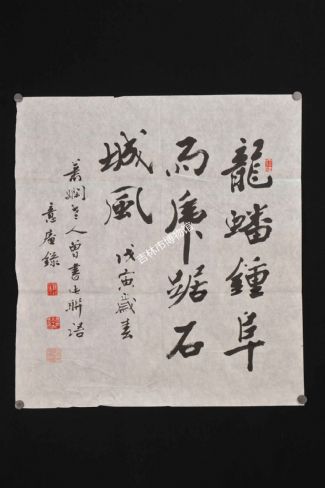 龍蟠鍾阜
雨虎踞石
城風
戊寅歲春
萧娴老人曾書此聯语
意庵錄
吉林市博物馆